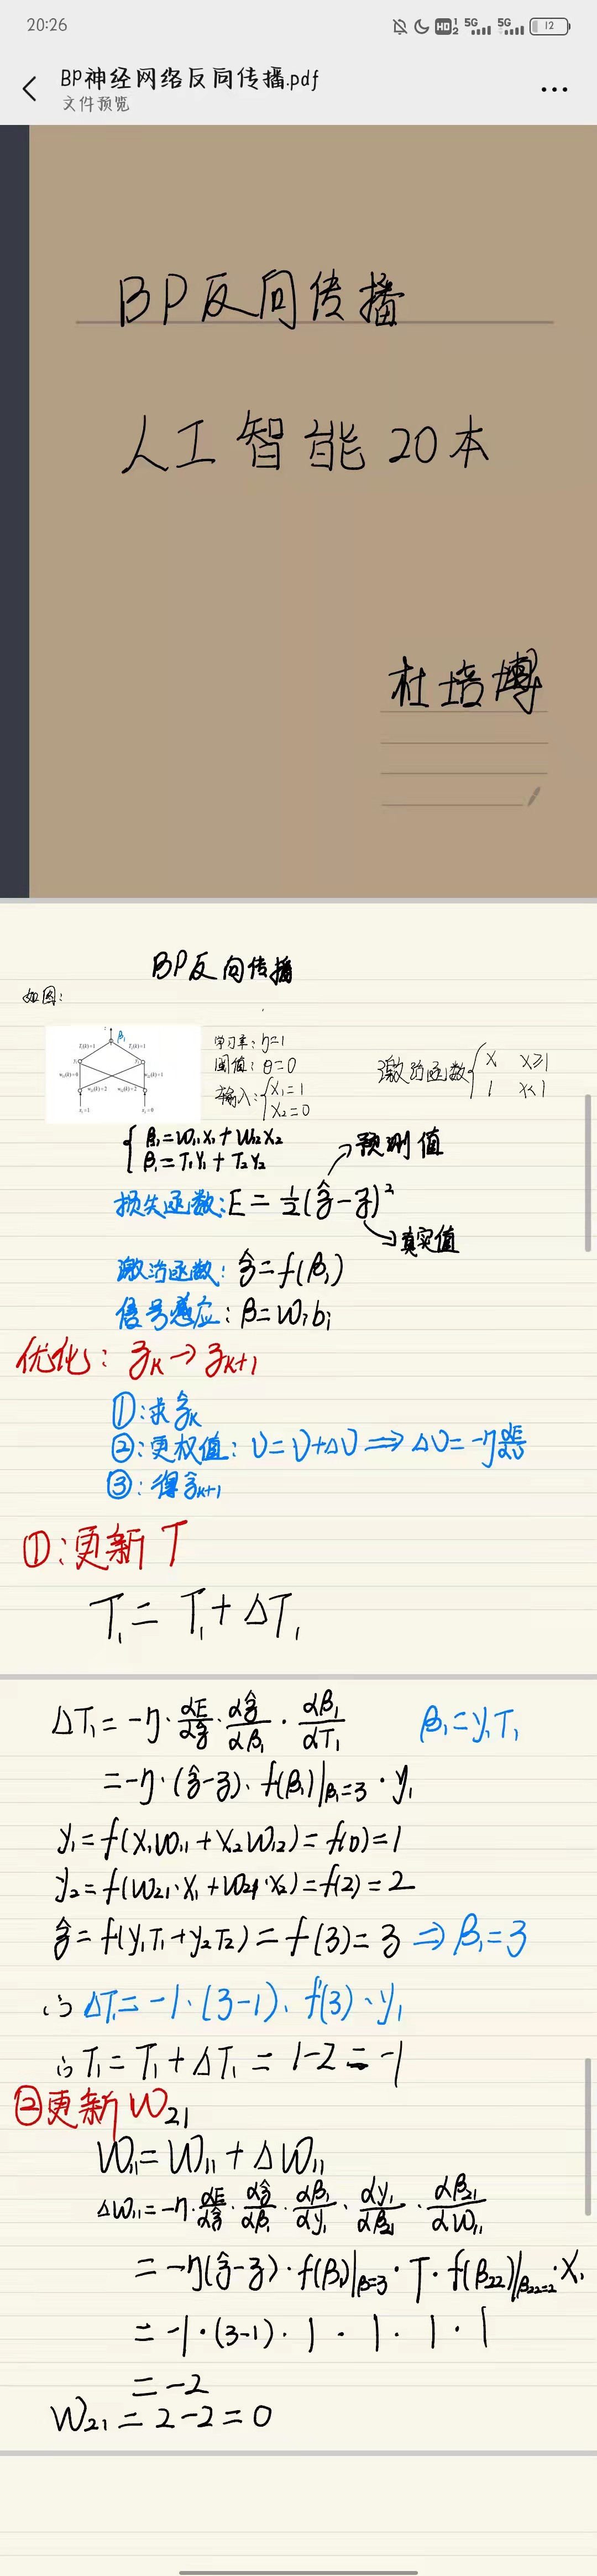 20:26
HD 1 2 5G 5G 12
BP神经网络反向传播.pdf
文件预览
BP反向传播
人工智能20本
杜培博
BP反向传播
如图:
学习率: η=1
阈值: θ=0
输入: { x₁=1
x₂=0
激活函数 { x x≥1
1 x<1
β₁
{ β₁=W₁₁X₁+W₁₂X₂
β₁=T₁Y₁+T₂Y₂
→预测值
损失函数: E=½(ẑ-z)²
→真实值
激活函数: ẑ=f(β₁)
信号感应: β=wᵢbᵢ
优化: z_K→z_K+1
①:求ẑ_K
②:更权值: υ=υ+Δυ ⟹ Δυ=-η
③:得ẑ_K+1
①:更新T
T₁= T₁+ΔT₁
ΔT₁=-η·αE/αẑ·αẑ/αβ₁·αβ₁/αT₁ β₁=y₁T₁
=-η·(ẑ-z)·f(β₁)|β₁=3·y₁
y₁=f(x₁w₁₁+x₂w₁₂)=f(0)=1
y₂=f(w₂₁·x₁+w₂₁·x₂)=f(2)=2
ẑ=f(y₁T₁+y₂T₂)=f(3)=3 ⟹β₁=3
∴ ΔT₁=-1·(3-1)·f(3)·y₁
∴ T₁=T₁+ΔT₁=1-2=-1
②更新W₂₁
W₁₁=W₁₁+ΔW₁₁
ΔW₁₁=-η·αE/αẑ·αẑ/αβ₁·αβ₁/αy₁·αy₁/αβ₂₁·αβ₂₁/αW₁₁
=-η(ẑ-z)·f(β₁)|β=3·T·f(β₂₂)|β₂₂=2·X₁
=-1·(3-1)·1·1·1·1
=-2
W₂₁=2-2=0